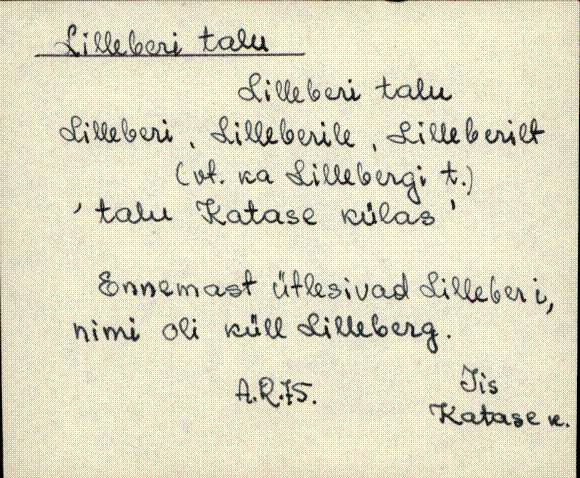 Lilleberi talu
Lilleberi talu
Lilleberi, Lilleberile, Lilleberilt
(vt. ka Lillebergi t.)
' talu Katase külas '
Ennemast ütlesivad Lilleberi,
nimi oli küll Lilleberg.
A.R.75. Iis
Katase k.